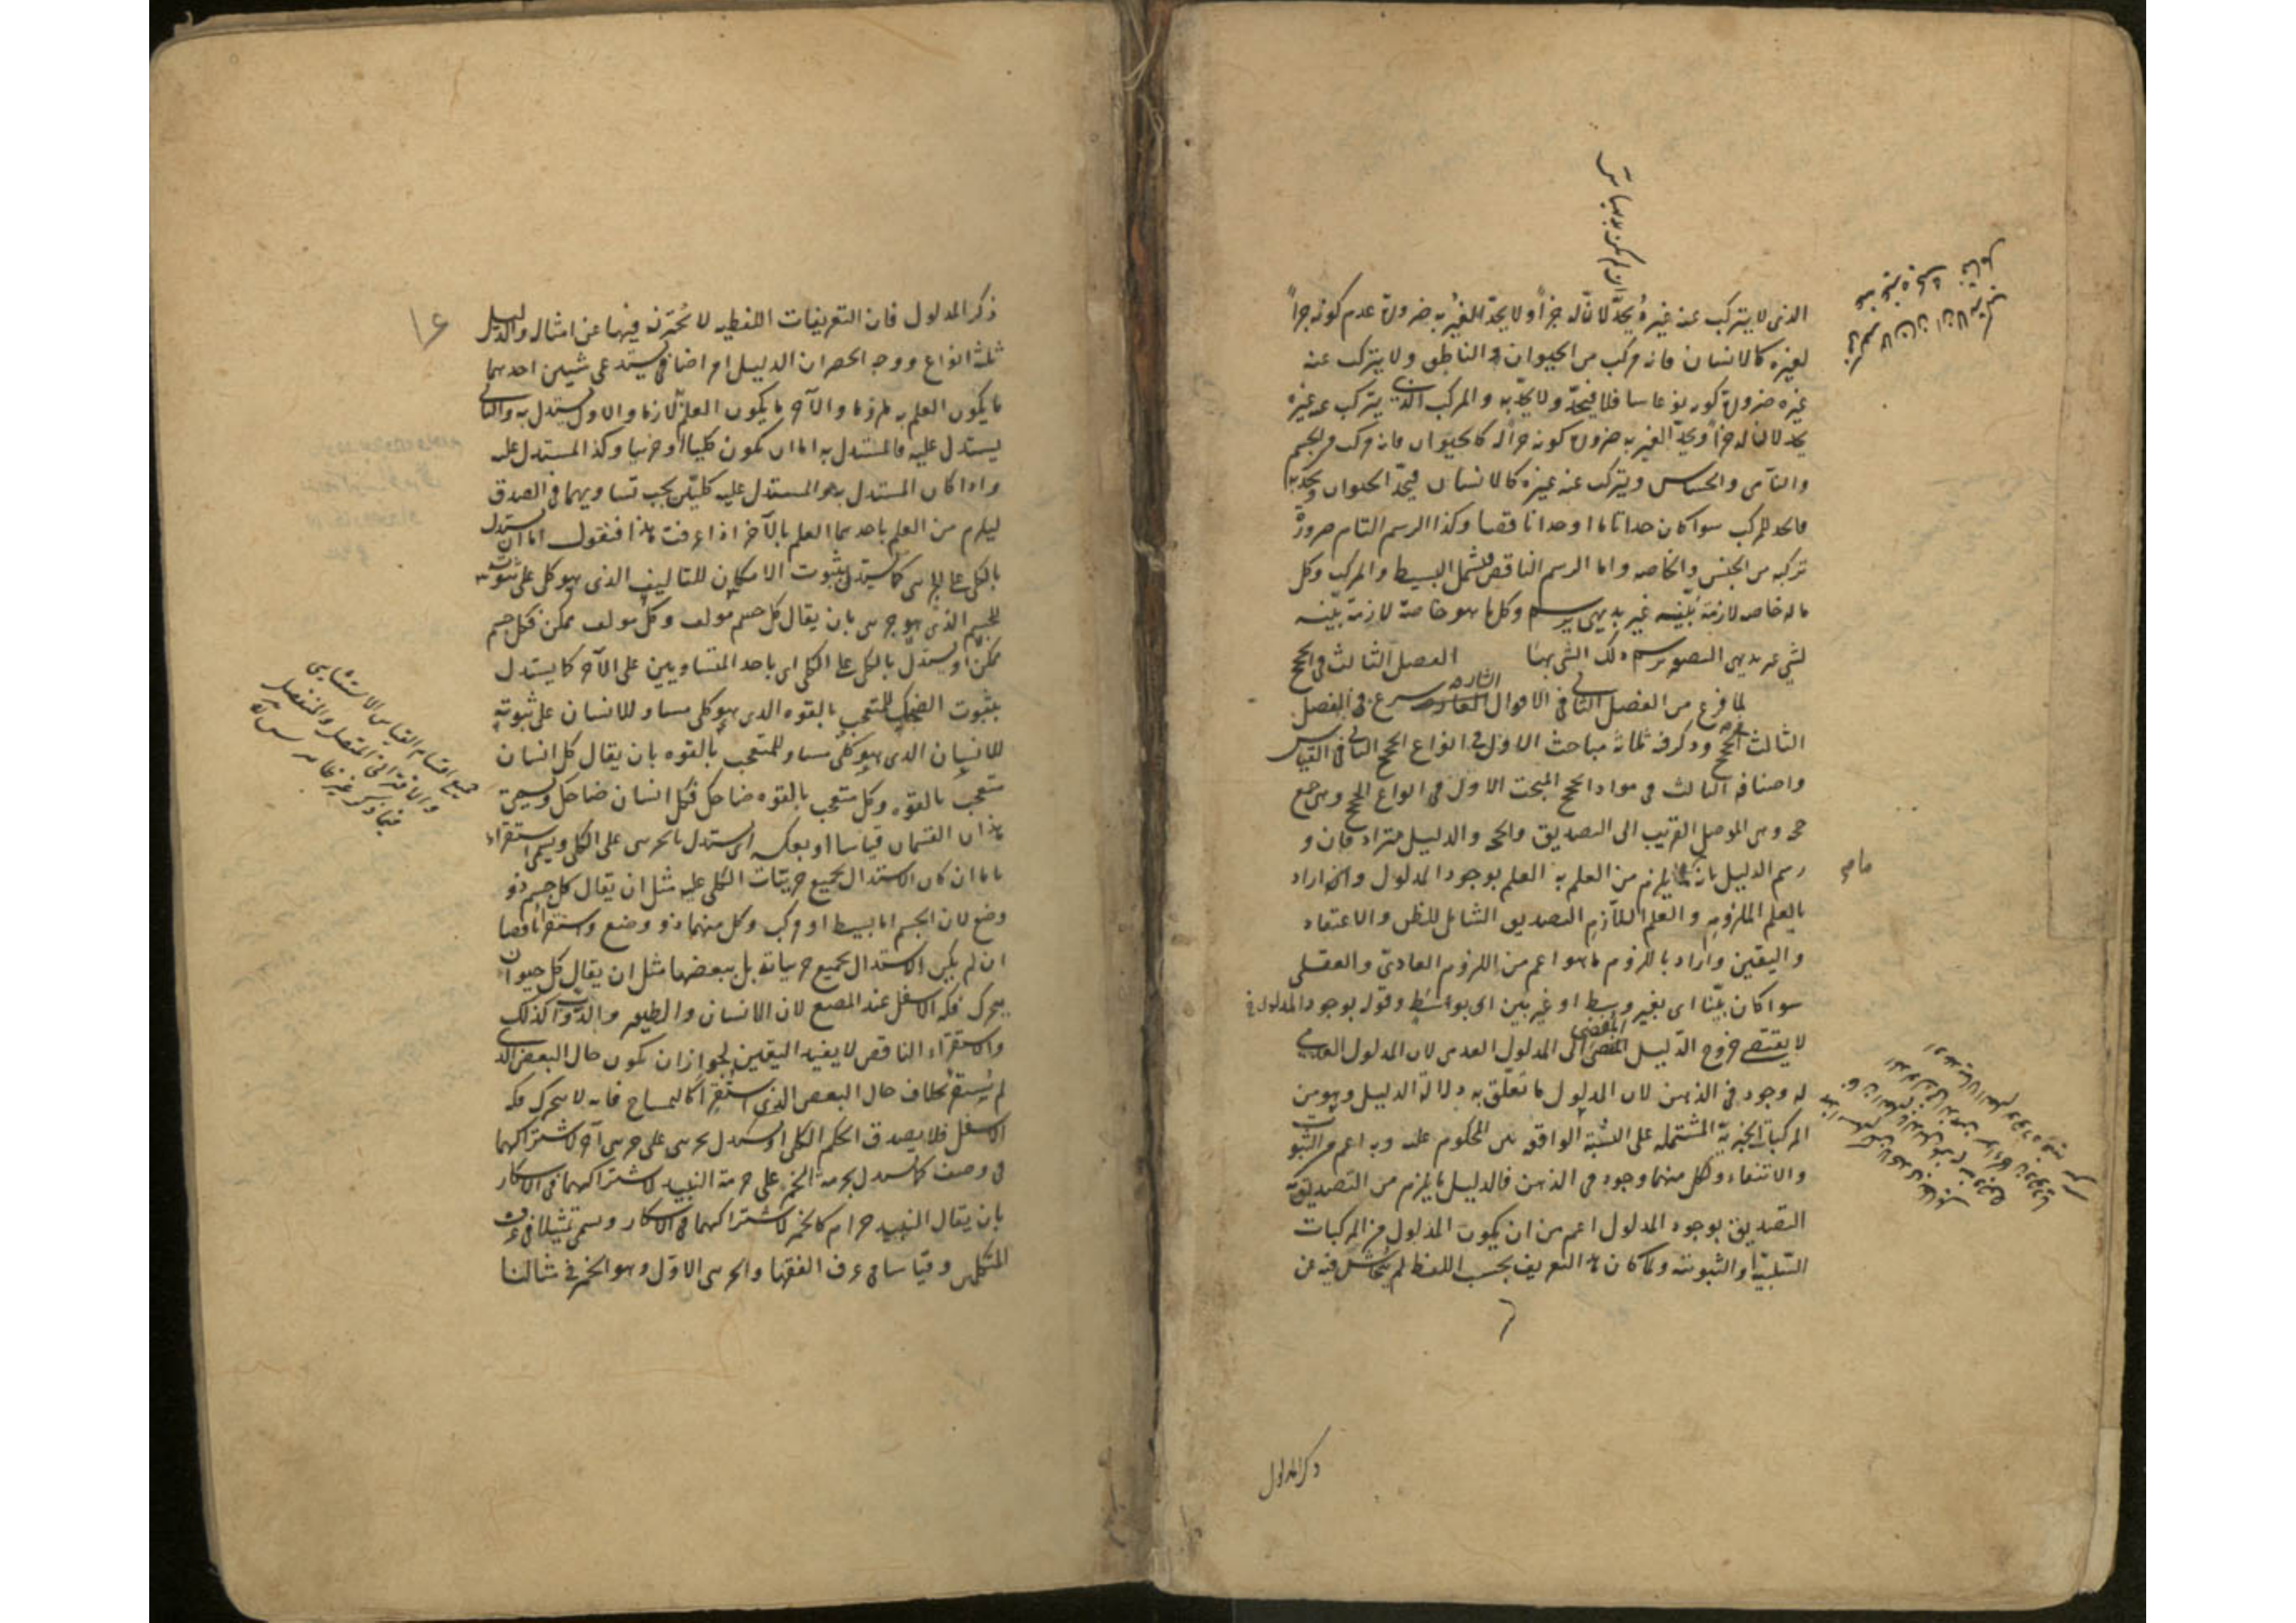 الذي لا يتركب عنه غيره يُحدّ لانّ له جزأ ولا يحدّ الغيرُ به ضرورة عدم كونه جزأ
لغيره كالانسان فانه مركب من الحيوان والناطق ولا يتركب عنه
غيره ضرورة كونه نوعا سافلا فيحدّ ولا يحدّ به والمركب الذي يتركب عنه غيره
يحد لان له جزأ ويحدّ الغير به ضرورة كونه جزأ له كالحيوان فانه مركب من الجسم
والنامى والحساس ويتركب عنه غيره كالانسان فيحدّ الحيوان ويحدّ به
فالحد للمركب سوا كان حدا تاما او حدا ناقصا وكذا الرسم التام ضرورة
تركبه من الجنس والخاصه واما الرسم الناقص فيشمل البسيط والمركب وكل
ما له خاصه لازمة بينه غير بديهى يرسم وكل ما هو خاصة لازمة بيّنه
لشي غير بديهى التصور يرسم ذلك الشي بها الفصل الثالث في الحجج
لما فرغ من الفصل الثاني في الاقوال الشارحه شرع في الفصل
الثالث في الحجج وذكر فيه ثلاثة مباحث الاول في انواع الحجج الثاني في القياس
واصنافه الثالث في مواد الحجج المبحث الاول في انواع الحجج وهي جمع
حجه وهى الموصل القريب الى التصديق والحجه والدليل مترادفان و
رسم الدليل بانه ما يلزم من العلم به العلم بوجود المدلول واراد
بالعلم الملزوم والعلم اللازم التصديق الشامل للظن والاعتقاد
واليقين واراد باللزوم ما هو اعم من اللزوم العادىّ والعقلى
سوا كان بيّنا اى بغير وسط او غير بين اى بواسطٍ وقوله بوجود المدلول
لا يقتضي خروج الدّليل المفضي الى المدلول العدمى لان المدلول العدمي
له وجود في الذهن لان المدلول ما تعلّق به دلالة الدليل وهو من
المركبات الخبرية المشتملة على النسبة الواقعه بين المحكوم عليه وبه اعم من الثبوت
والانتفاء ولكل منهما وجود فى الذهن فالدليل ما يلزم من التصديق به
التصديق بوجود المدلول اعم من ان يكون المدلول من المركبات
السّلبية او الثبوتية ولما كان هذا التعريف بحسب اللفظ لم يتحاش فيه عن
ذكر المدلول
ذكر المدلول فان التعريفات اللفظيه لا يُحترز فيها عن امثاله والدليل
ثلثة انواع ووجه الحصر ان الدليل امر اضافي يستدعى شيئين احدهما
ما يكون العلم به ملزوما والآخر ما يكون العلم به لازما والاول يستدل به والثاني
يستدل عليه فالمستدل به اما ان يكون كليا او جزئيا وكذا المستدل عليه
واذا كان المستدل به والمستدل عليه كليّين يجب تساويهما في الصدق
ليلزم من العلم باحدهما العلم بالآخر اذا عرفت هذا فنقول اما ان يستدل
بالكلي على الجزئى كما يستدل بثبوت الامكان للتاليف الذى هو كل على ثبوته
للجسم الذي هو جزئى بان يقال كل جسم مُولف وكل مولف ممكن فكل جسم
ممكن او يستدل بالكلى على الكلى اى باحد المتساويين على الآخر كما يستدل
بثبوت الضحك للمتعجب بالقوه الذى هو كلى مساو للانسان على ثبوته
للانسان الذى هو كلى مساو للمتعجب بالقوه بان يقال كل انسان
متعجب بالقوه وكل متعجب بالقوه ضاحك فكل انسان ضاحك ويسمى
هذان القسمان قياسا او بعكسه اى يستدل بالجزئى على الكلى ويسمى استقراء
تاما ان كان الاستدلال بجميع جزئيات الكلى عليه مثل ان يقال كل جسم ذو
وضع لان الجسم اما بسيط او مركب وكل منهما ذو وضع واستقراء ناقصا
ان لم يكن الاستدلال بجميع جزئياته بل ببعضها مثل ان يقال كل حيوان
يحرك فكه الاسفل عند المضغ لان الانسان والطيور والدّوابّ كذلك
والاستقراء الناقص لا يفيد اليقين لجواز ان يكون حال البعض الذي
لم يُستقرأ بخلاف حال البعض الذي استُقرِأ كالتمساح فانه لا يحرك فكه
الاسفل فلا يصدق الحكم الكلى او يستدل بجزئى على جزئى آخر لاشتراكهما
في وصف كما يستدل بحرمة الخمر على حرمة النبيذ لاشتراكهما فى الاسكار
بان يقال النبيذ حرام كالخمر لاشتراكهما في الاسكار ويسمى تمثيلا في عرف
المتكلمين وقياسا في عرف الفقها والجزئى الاوّل وهو الخمر في مثالنا
جميع اقسام القياس الاستثنايى
والاقترانى المتصل والمنفصل